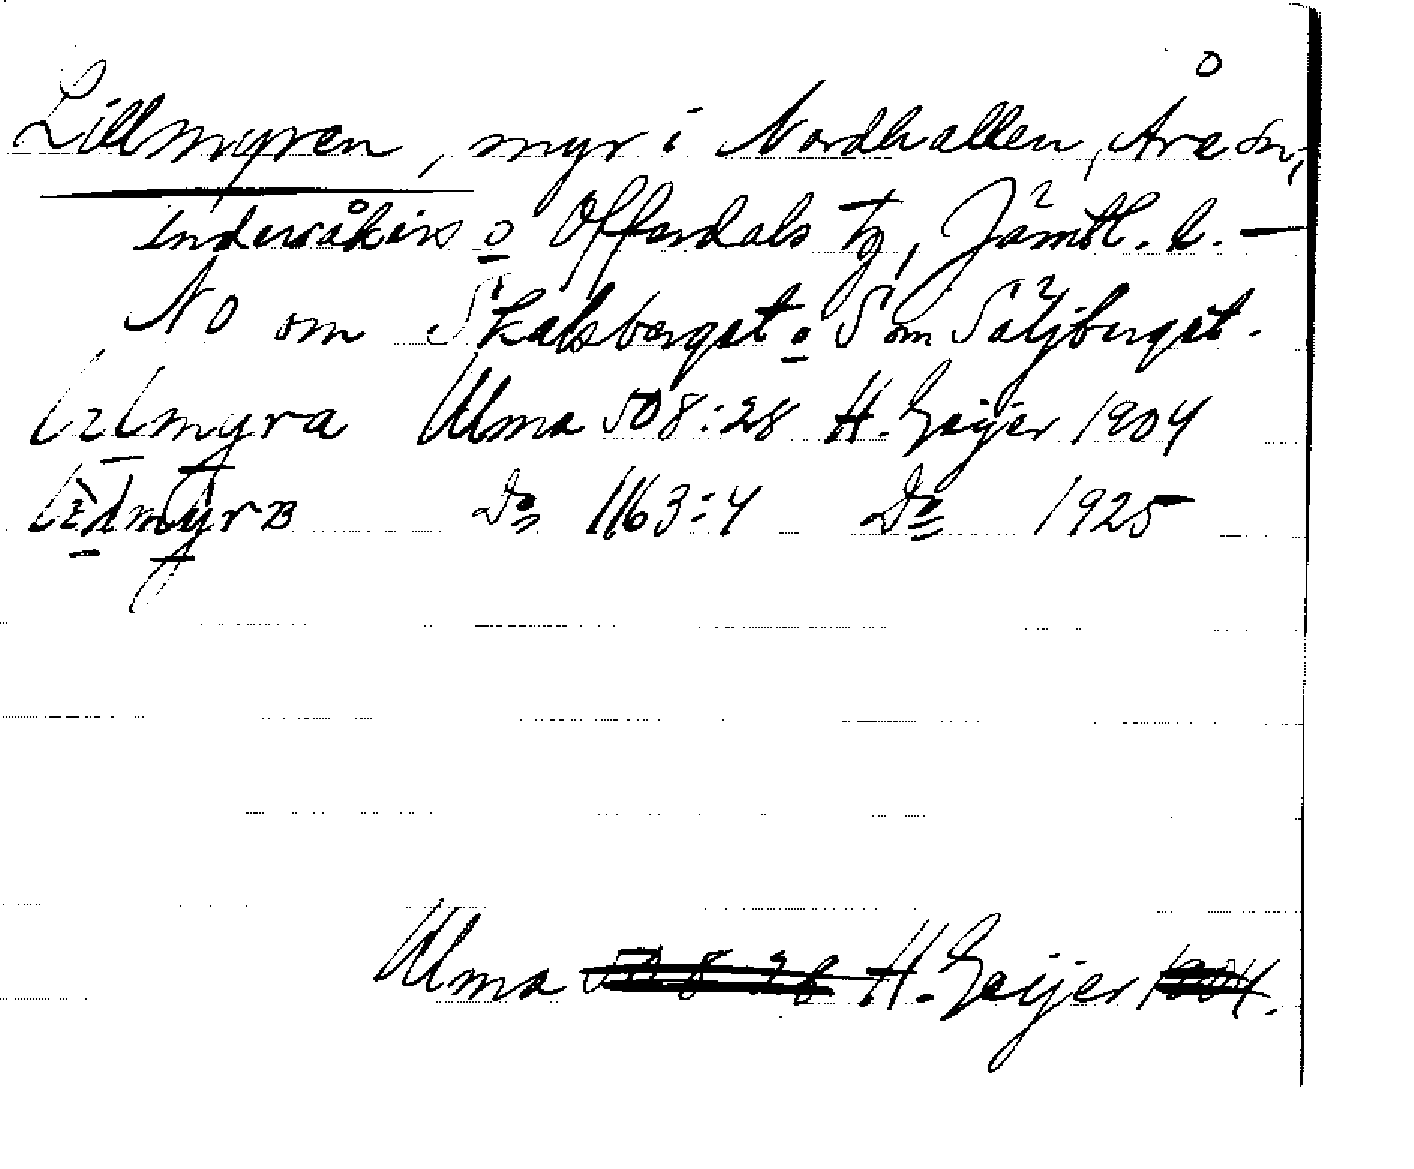 O
Lillmyren, myr i Nordhallen, Åre sn,
Undersåkers o Offerdals tg, Jämtl. l. —
NO om Skalsberget o S om Säljberget.
Ulma 508:28 H. Geijer 1904
Do 1163:4 Do 1925
Ulma 508 28 H. Geijer 1904.